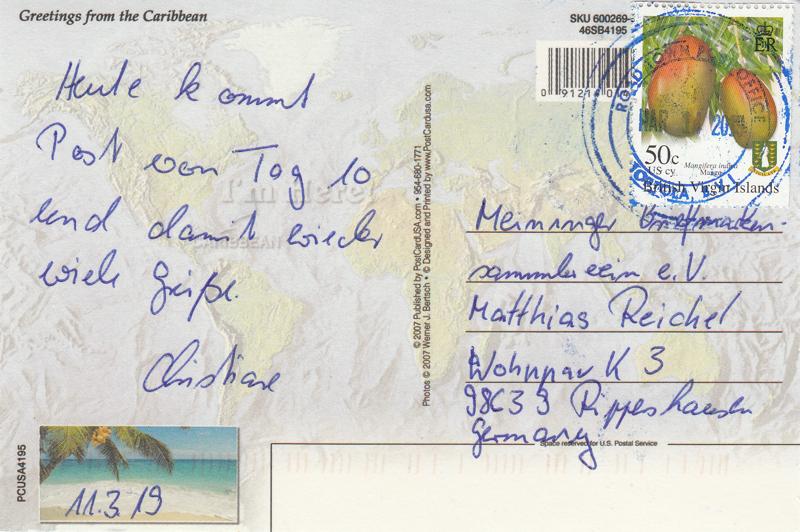 Greetings from the Caribbean
SKU 600269-
46SB4195
0 91214 0
Heute kommt
Post von Tag 10
und damit wieder
viele Grüße.
Christiane
I'm Here!
CARIBBEAN
11.3.19
PCUSA4195
© 2007 Published by PostCardUSA.com • 954-680-1771
Photos © 2007 Werner J. Bertsch • © Designed and Printed by www.PostCardusa.com
ER
ROAD TOWN OFFICE
MAR 20
TORTOLA, B.V.I.
50c
US cy
Mangifera indica
Mango
British Virgin Islands
Meininger Briefmarken-
sammlerverein e.V.
Matthias Reichel
Wohnpark 3
98639 Rippershausen
Germany
Space reserved for U.S. Postal Service